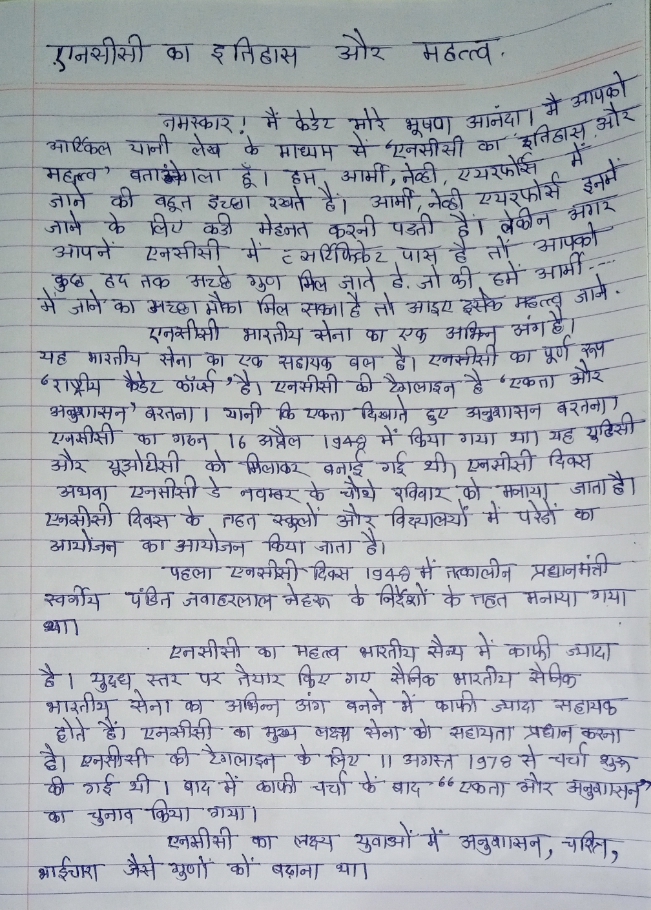 एनसीसी का इतिहास और महत्त्व.
नमस्कार! मैं केडेट मोरे भूषण आनंदा। मै आपको
आर्टिकल यानी लेख के माध्यम से 'एनसीसी का इतिहास और
महत्त्व' बताने वाला हूँ। हम आर्मी, नेव्ही, एयरफोर्स में
जाने की बहूत इच्छा रखते हैं। आर्मी, नेव्ही एयरफोर्स इनमें
जाने के लिए कडी मेहनत करनी पडती हैं। लेकीन अगर
आपनें एनसीसी में C सर्टिफिकेट पास है तों आपको
कुछ हद तक अच्छे गुण मिल जाते हे. जो की हमें आर्मी---
में जाने का अच्छा मौका मिल सकता है तो आइए इसके महत्व जाने.
एनसीसी भारतीय सेना का एक अभिन्न अंग है।
यह भारतीय सेना का एक सहायक बल है। एनसीसी का पूर्ण रूप
"राष्ट्रीय कैडेट कॉर्प्स' है। एनसीसी की टैगलाइन है "एकता और
अनुशासन' बरतना। यानी कि एकता दिखाते हुए अनुशासन बरतना।
एनसीसी का गठन 16 अप्रैल 1948 में किया गया था। यह युटिसी
और यूओटीसी को मिलाकर बनाई गई थी। एनसीसी दिवस
अथवा एनसीसी डे नवम्बर के चौथे रविवार को मनाया जाता है।
एनसीसी दिवस के तहत स्कुलों और विद्यालयों में परेडों का
आयोजन का आयोजन किया जाता है।
पहला एनसीसी दिवस 1948 में तत्कालीन प्रधानमंत्री
स्वर्गीय पंडित जवाहरलाल नेहरू के निर्देशों के तहत मनाया गया
था।
एनसीसी का महत्व भारतीय सैन्य में काफी ज्यादा
है। युद्ध स्तर पर तैयार किए गए सैनिक भारतीय सैनिक
भारतीय सेना का अभिन्न अंग बनने में काफी ज्यादा सहायक
होते हैं। एनसीसी का मुख्य लक्ष्य सेना को सहायता प्रधान करना
है। एनसीसी की टैगलाइन के लिए 11 अगस्त 1978 से चर्चा शुरू
की गई थी। बाद में काफी चर्चा के बाद "एकता और अनुशासन"
का चुनाव किया गया।
एनसीसी का लक्ष्य युवाओं में अनुशासन, चरित्र,
भाईचारा जैसे गुणों कों बढ़ाना था।